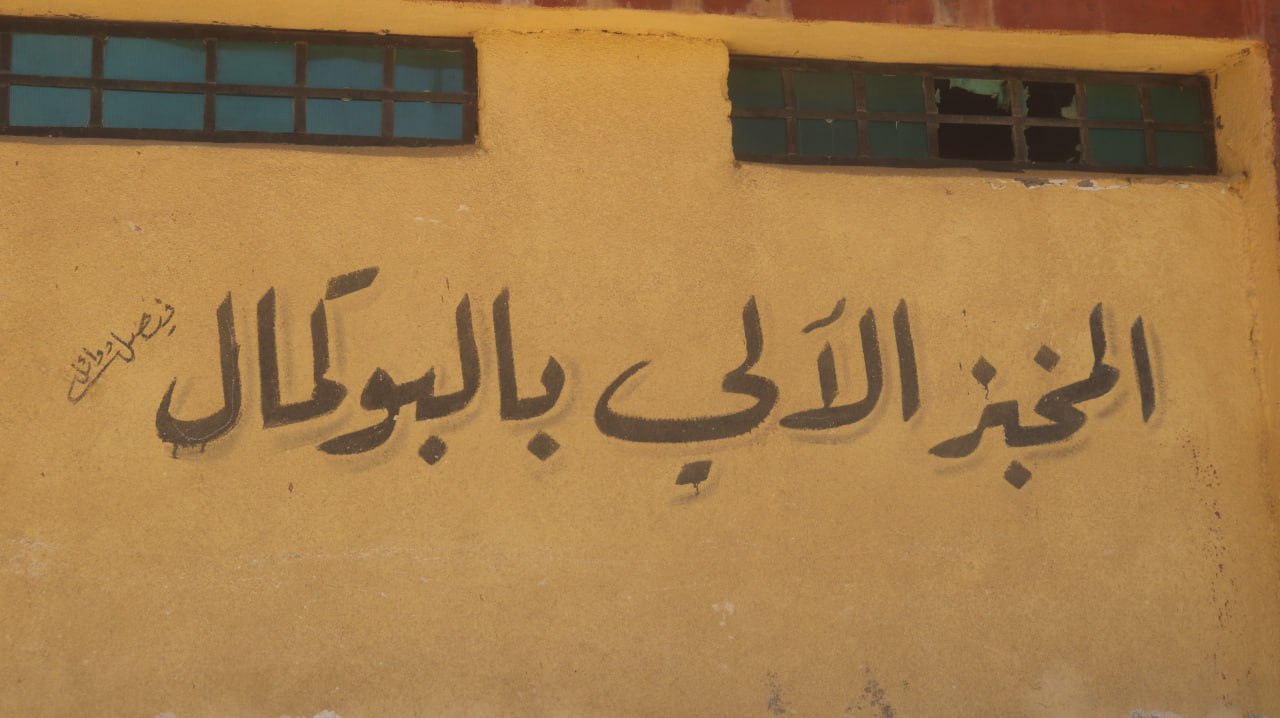 المخبز الآلي بالبوكمال
فيصل ووائل